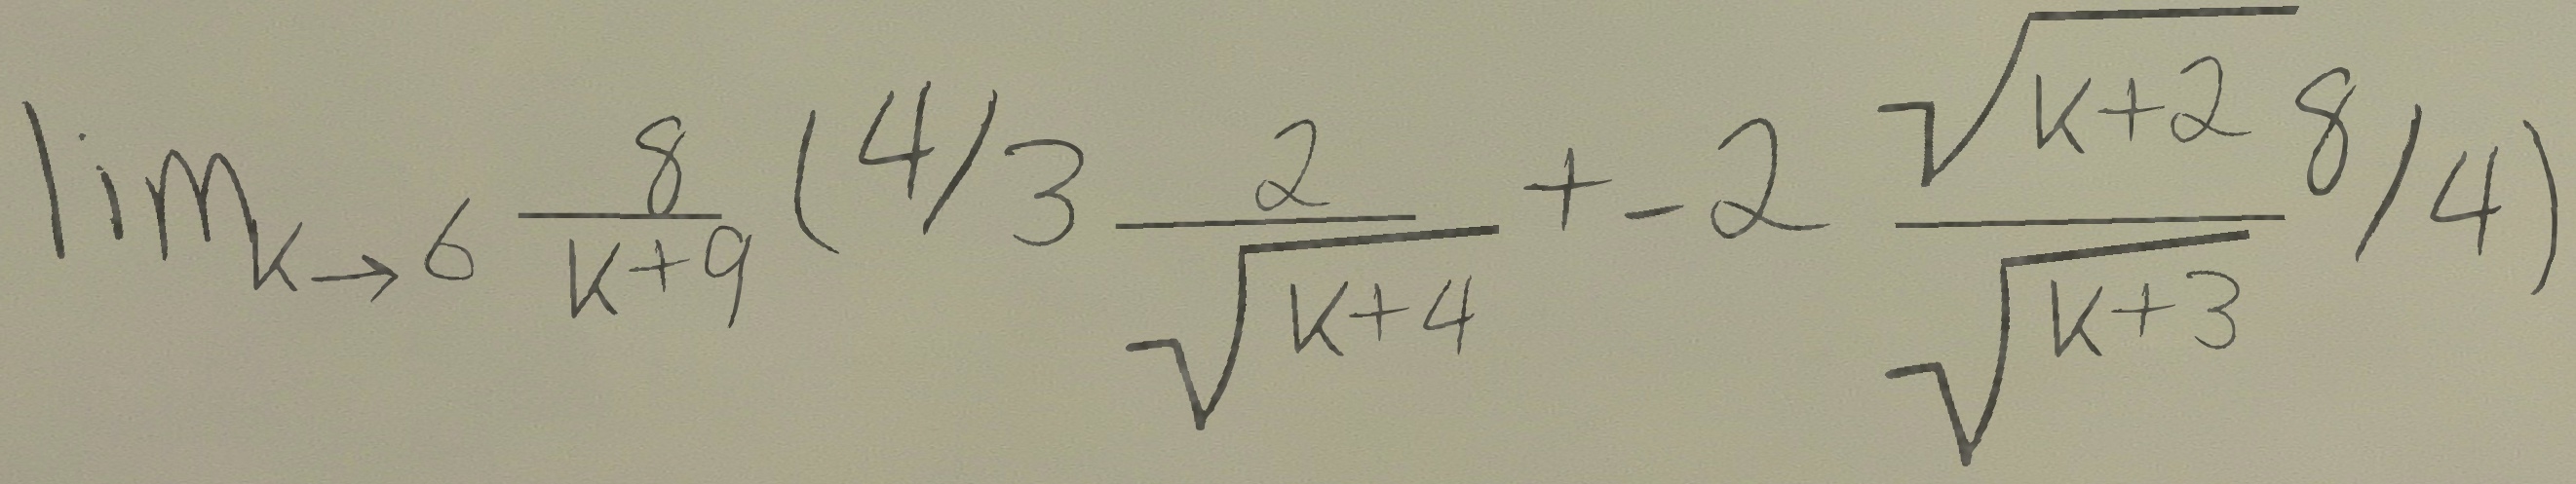 \lim_{k \to 6} \frac{8}{k+9} (4/3 \frac{2}{\sqrt{k+4}} + -2 \frac{\sqrt{k+2}}{\sqrt{k+3}} 8/4)